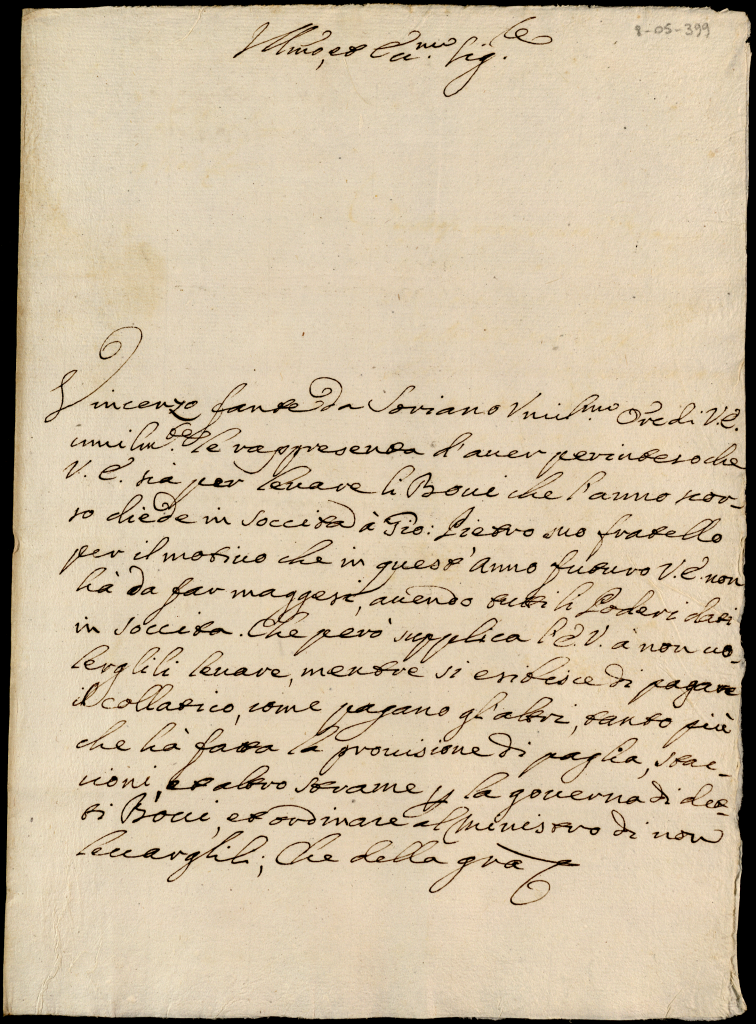 8-05-399
Illmo, et Ecc.mo Sig.re
Vincenzo fante da Soriano Umil.mo Ore di V.E.
umilm.te le rappresenta d'auer perinteso che
V.E. sia per leuare li Boui che l'anno scor-
so diede in soccita à Gio: Pietro suo fratello
per il motiuo che in quest'anno futuro V.E. non
hà da far maggesi, auendo tutti li Poderi dati
in soccita. Che però supplica l'E.V. à non uo-
lerglili leuare, mentre si esibisce di pagare
il collatico, come pagano gl'altri, tanto più
che hà fatta la prouisione di paglia, stac-
cioni, et altro strame p la gouerna di det-
ti Boui, et ordinare al Ministro di non
leuarglili; Che della gra